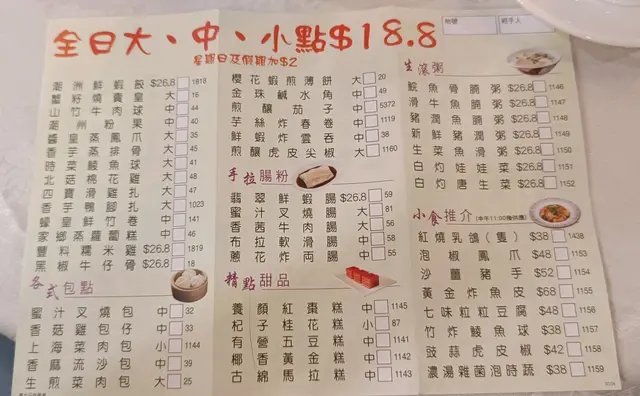 全日大、中、小點$18.8
星期日及假期加$2
枱號
經手人
潮洲鮮蝦餃 $26.8 1818
蟹籽燒賣皇 大 16
山竹牛肉球 中 44
潮州粉果 中 40
醬皇蒸鳳爪 大 35
香芋蒸排骨 大 45
時菜鯪魚球 大 41
北菇棉花雞 大 48
四寶滑雞扎 大 47
香芋鴨腳扎 大 1023
蠔皇鮮竹卷 中 141
家鄉蒸蘿蔔糕 中 46
豐料糯米雞 $26.8 1819
黑椒牛仔骨 $26.8 18
各式包點
蜜汁叉燒包 中 32
香菇雞包仔 中 33
上海菜肉包 小 1144
香麻流沙包 中 39
生煎菜肉包 大 25
櫻花蝦煎薄餅 大 20
金珠鹹水角 中 49
煎釀茄子 中 5372
芋絲炸春腸 中 1119
鮮蝦炸雲吞 中 38
煎釀虎皮尖椒 大 1160
手拉腸粉
翡翠鮮蝦腸 $26.8 59
蜜汁叉燒腸 大 81
香茜牛肉腸 大 56
布拉軟滑腸 中 58
蔥花炸両腸 中 55
精點甜品
養顏紅棗糕 中 1145
杞子桂花糕 小 87
有營五豆糕 中 1141
椰香黃金糕 中 1142
古綿馬拉糕 中 1143
生滾粥
鯇魚骨腩粥 $26.8 1146
滑牛魚腩粥 $26.8 1147
豬潤魚腩粥 $26.8 1148
新鮮豬潤粥 $26.8 1149
生菜魚滑粥 $26.8 1150
白灼娃娃菜 $26.8 1151
白灼唐生菜 $26.8 1152
小食推介 (中午11:00後供應)
紅燒乳鴿(隻) $38 1438
泡椒鳳爪 $48 1153
沙薑豬手 $52 1154
黃金炸魚皮 $68 1155
七味粒粒豆腐 $48 1156
竹炸鯪魚球 $38 1157
豉蒜虎皮椒 $42 1158
濃湯雜菌泡時蔬 $38 1159